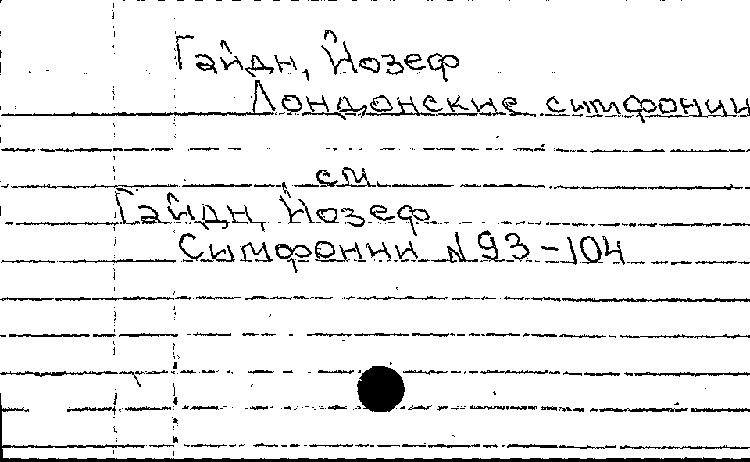 Гайдн, Йозеф
Лондонские симфонии
см.
Гайдн, Йозеф
Симфонии N 93-104